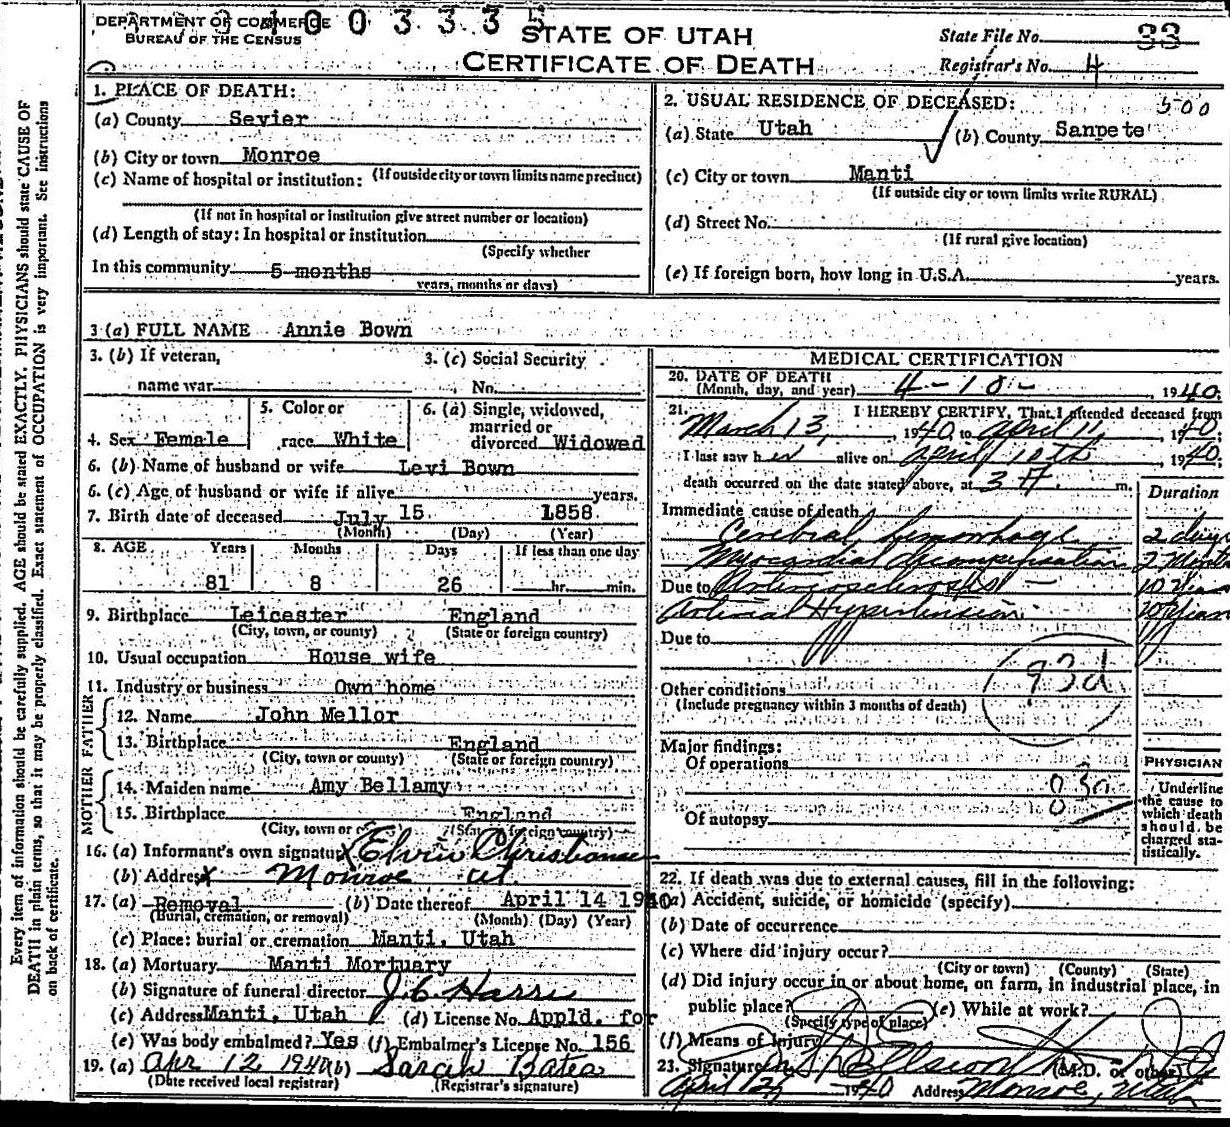 Every item of information should be carefully supplied. AGE should be stated EXACTLY. PHYSICIANS should state CAUSE OF
DEATH in plain terms, so that it may be properly classified. Exact statement of OCCUPATION is very important. See instructions
on back of certificate.
DEPARTMENT OF COMMERCE
BUREAU OF THE CENSUS
STATE OF UTAH
CERTIFICATE OF DEATH
State File No. 33
Registrar's No. 4
1. PLACE OF DEATH:
(a) County Sevier
(b) City or town Monroe
(If outside city or town limits name precinct)
(c) Name of hospital or institution:
(If not in hospital or institution give street number or location)
(d) Length of stay: In hospital or institution
(Specify whether
In this community 5 months
years, months or days)
2. USUAL RESIDENCE OF DECEASED: 500
(a) State Utah (b) County Sanpete
(c) City or town Manti
(If outside city or town limits write RURAL)
(d) Street No.
(If rural give location)
(e) If foreign born, how long in U.S.A. years.
3 (a) FULL NAME Annie Bown
3. (b) If veteran,
name war
3. (c) Social Security
No.
4. Sex Female
5. Color or
race White
6. (a) Single, widowed,
married or
divorced Widowed
6. (b) Name of husband or wife Levi Bown
6. (c) Age of husband or wife if alive years.
7. Birth date of deceased July 15 1858
(Month) (Day) (Year)
8. AGE Years Months Days If less than one day
81 8 26 hr. min.
9. Birthplace Leicester England
(City, town, or county) (State or foreign country)
10. Usual occupation House wife
11. Industry or business Own home
FATHER
12. Name John Mellor
13. Birthplace England
(City, town or county) (State or foreign country)
MOTHER
14. Maiden name Amy Bellamy
15. Birthplace England
(City, town or county) (State or foreign country)
16. (a) Informant's own signature Elvin Christiansen
(b) Address Monroe ut.
17. (a) Removal (b) Date thereof April 14 1940
(Burial, cremation, or removal) (Month) (Day) (Year)
(c) Place: burial or cremation Manti, Utah
18. (a) Mortuary Manti Mortuary
(b) Signature of funeral director J.C. Harris
(c) Address Manti, Utah (d) License No. Appld. for
(e) Was body embalmed? Yes (f) Embalmer's License No. 156
19. (a) Apr 12 1940 (b) Sarah Bates
(Date received local registrar) (Registrar's signature)
MEDICAL CERTIFICATION
20. DATE OF DEATH
(Month, day, and year) 4-10- 1940.
21. I HEREBY CERTIFY, That I attended deceased from
March 13, 1940, to April 11, 1940.
I last saw her alive on April 10th 1940.
death occurred on the date stated above, at 3 A. m.
Duration
Immediate cause of death
Cerebral hemorhage 2 days
Myocardial decompensation 2 Months
Due to Arteriosclerosis 10 Years
Arterial Hypertension 20 Years
Due to
93d
Other conditions
(Include pregnancy within 3 months of death)
Major findings:
Of operations
Of autopsy
PHYSICIAN
Underline
the cause to
which death
should be
charged sta-
tistically.
22. If death was due to external causes, fill in the following:
(a) Accident, suicide, or homicide (specify)
(b) Date of occurrence
(c) Where did injury occur?
(City or town) (County) (State)
(d) Did injury occur in or about home, on farm, in industrial place, in
public place? (e) While at work?
(Specify type of place)
(f) Means of injury
23. Signature Ellsworth (M.D. or other)
April 12, 1940 Address Monroe, Utah